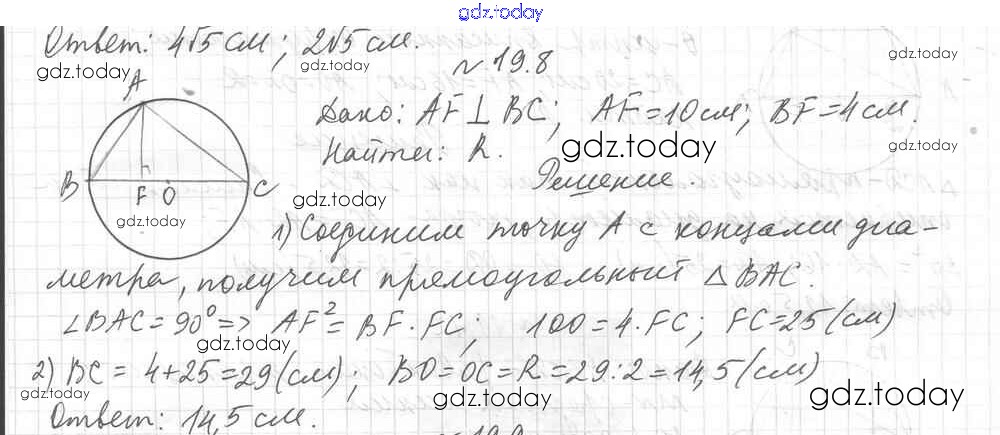 gdz.today
Ответ: 4√5 см; 2√5 см.
gdz.today
gdz.today
№ 19.8
A
Дано: AF ⊥ BC; AF = 10 см; BF = 4 см.
Найти: R.
gdz.today
B F O C
Решение.
gdz.today
gdz.today
1) Соединим точку A с концами диа-
метра, получим прямоугольный △ BAC.
∠BAC = 90° => AF² = BF · FC; 100 = 4 · FC; FC = 25 (см)
gdz.today
gdz.today
2) BC = 4 + 25 = 29 (см); BO = OC = R = 29 : 2 = 14,5 (см)
gdz.today
gdz.today
Ответ: 14,5 см.